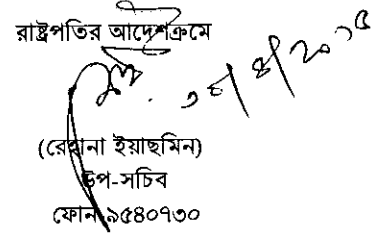 রাষ্ট্রপতির আদেশক্রমে
(রেহানা ইয়াছমিন)
উপ-সচিব
ফোন ৯৫৪০৭৩০